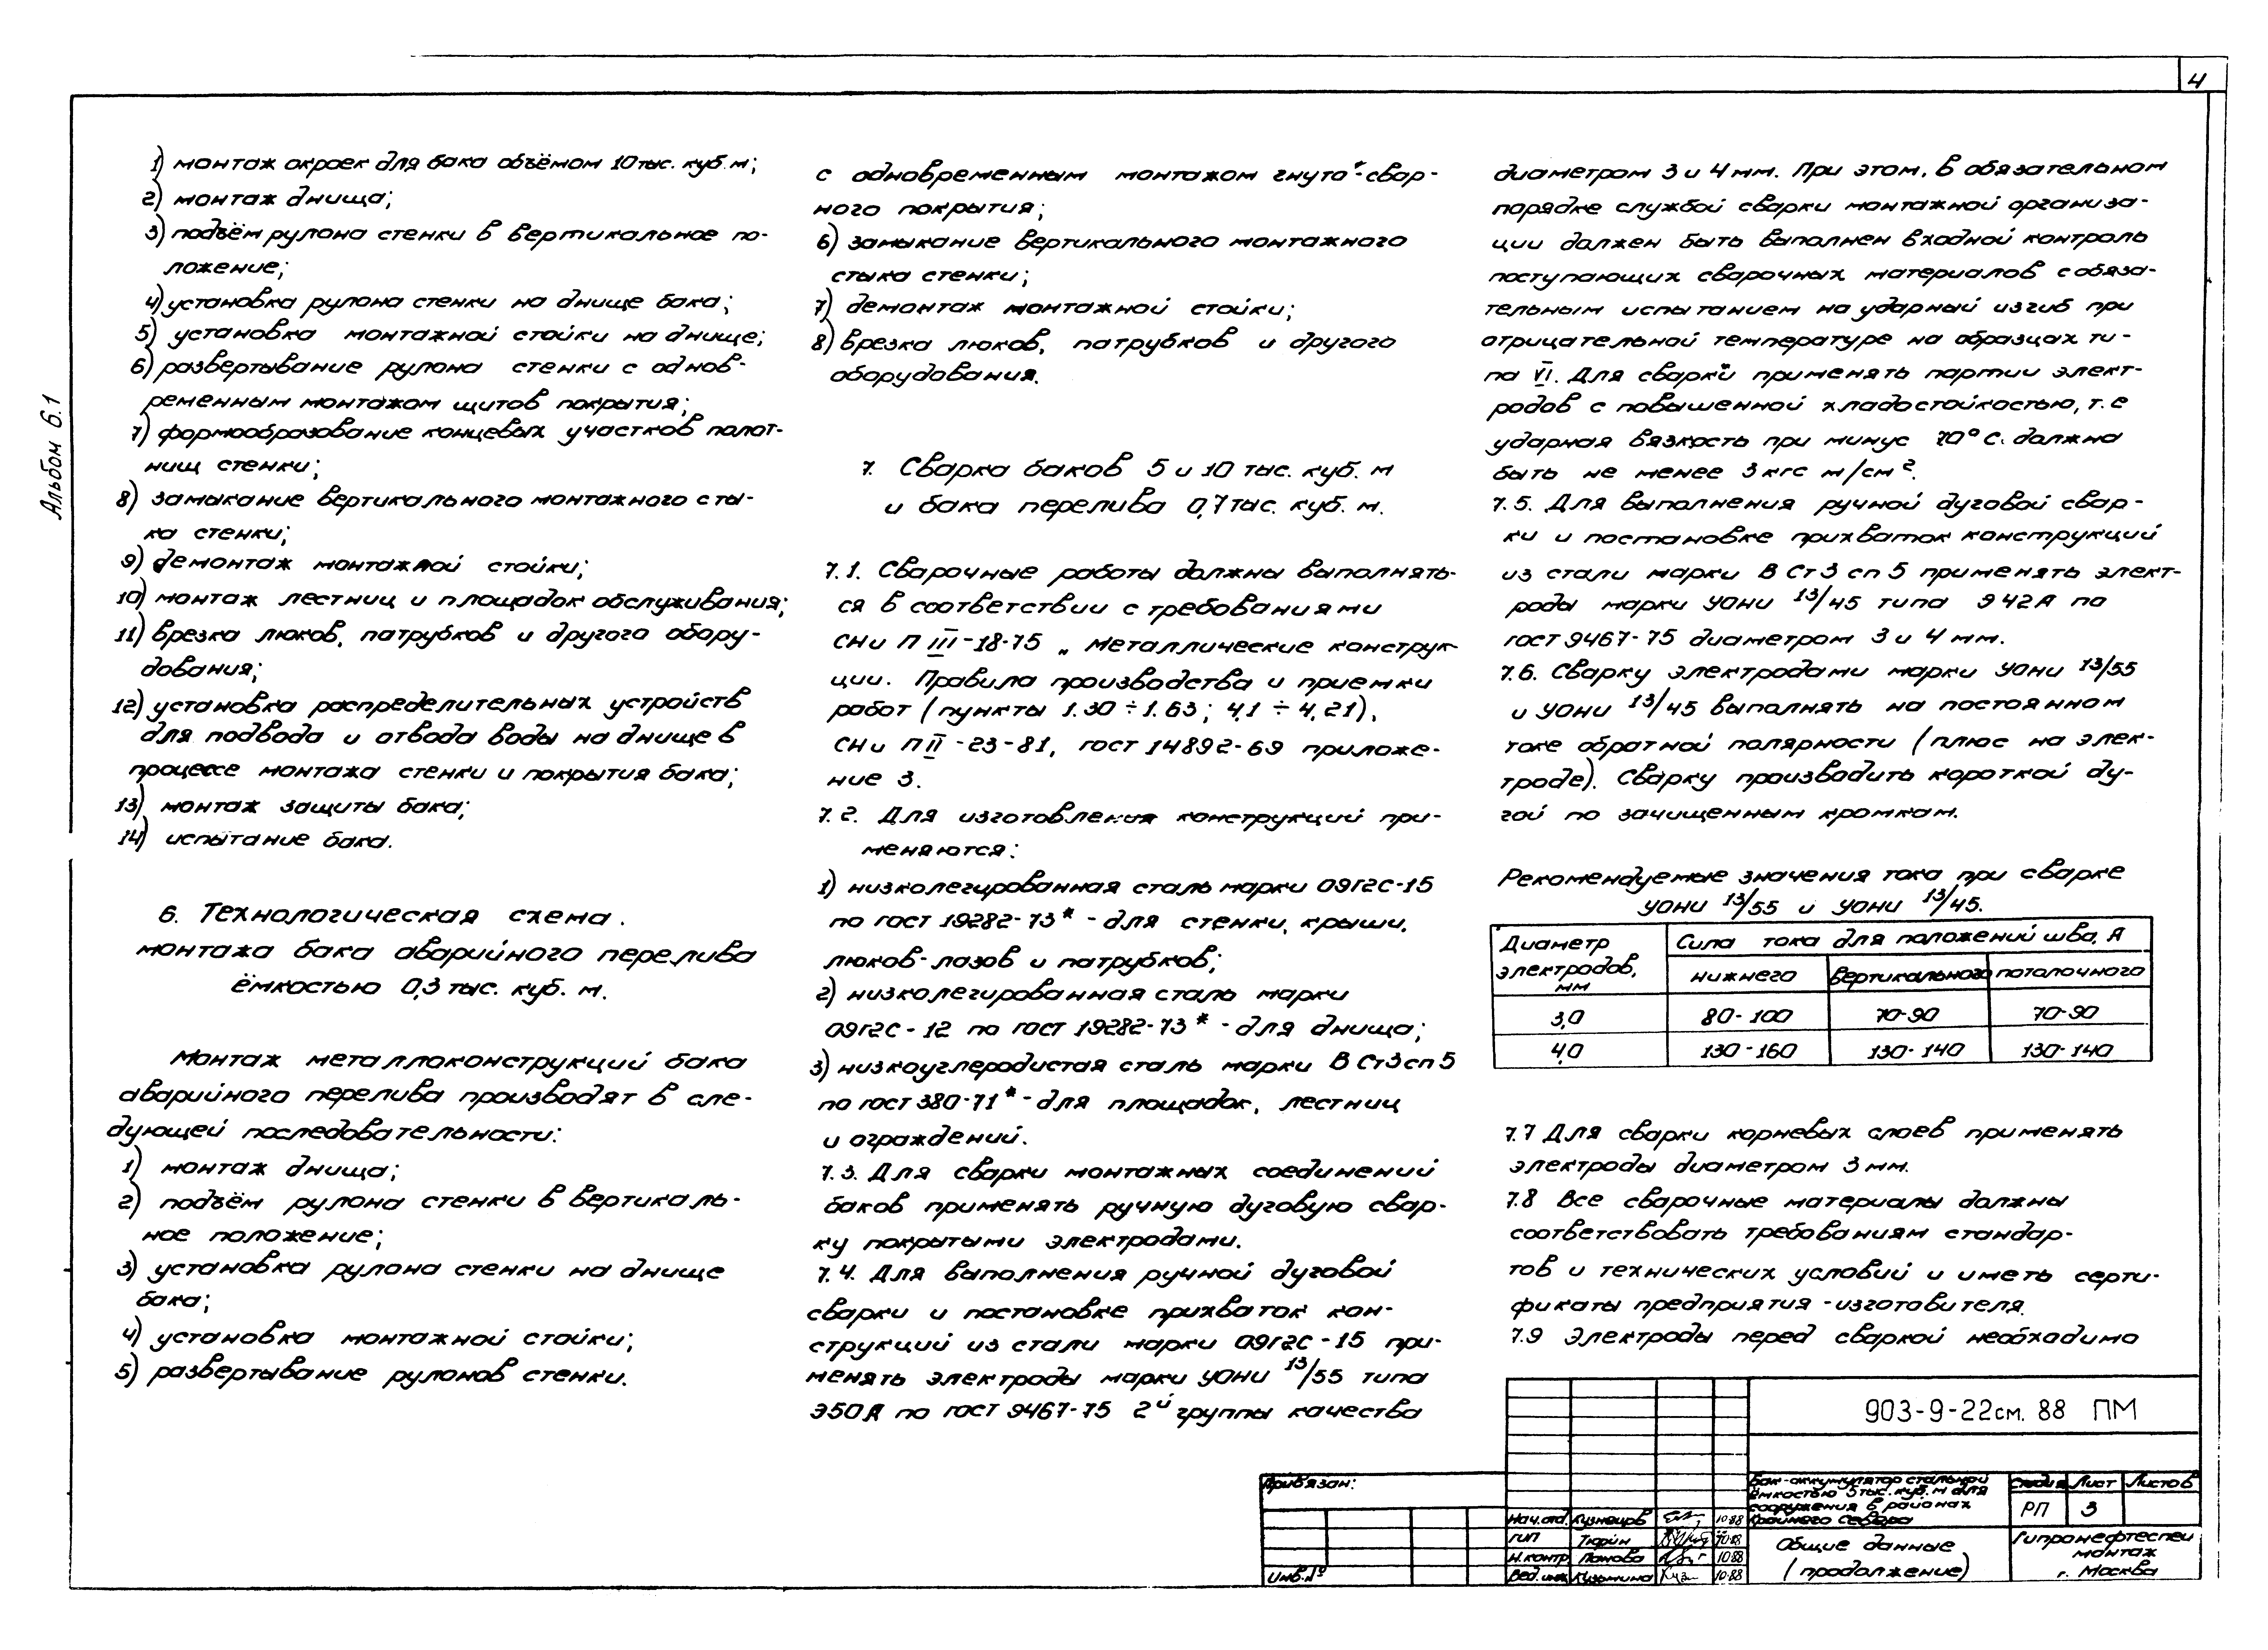 4
Альбом 6.1
1) монтаж окраек для бака объёмом 10 тыс. куб. м;
2) монтаж днища;
3) подъём рулона стенки в вертикальное по-
ложение;
4) установка рулона стенки на днище бака;
5) установка монтажной стойки на днище;
6) развертывание рулона стенки с однов-
ременным монтажом щитов покрытия;
7) формообразование концевых участков полот-
нищ стенки;
8) замыкание вертикального монтажного сты-
ка стенки;
9) демонтаж монтажной стойки;
10) монтаж лестниц и площадок обслуживания;
11) врезка люков, патрубков и другого обору-
дования;
12) установка распределительных устройств
для подвода и отвода воды на днище в
процессе монтажа стенки и покрытия бака;
13) монтаж защиты бака;
14) испытание бака.
6. Технологическая схема.
монтажа бака аварийного перелива
ёмкостью 0,3 тыс. куб. м.
Монтаж металлоконструкций бака
аварийного перелива производят в сле-
дующей последовательности:
1) монтаж днища;
2) подъём рулона стенки в вертикаль-
ное положение;
3) установка рулона стенки на днище
бака;
4) установка монтажной стойки;
5) развертывание рулонов стенки.
с одновременным монтажом гнуто-свар-
ного покрытия;
6) замыкание вертикального монтажного
стыка стенки;
7) демонтаж монтажной стойки;
8) врезка люков, патрубков и другого
оборудования.
7. Сварка баков 5 и 10 тыс. куб. м
и бака перелива 0,7 тыс. куб. м.
7.1. Сварочные работы должны выполнять-
ся в соответствии с требованиями
СНиП III-18-75 „Металлические конструк-
ции. Правила производства и приемки
работ (пункты 1.30÷1.63; 4,1÷4,21),
СНиП II-23-81, ГОСТ 14892-69 приложе-
ние 3.
7.2. Для изготовления конструкций при-
меняются:
1) низколегированная сталь марки 09Г2С-15
по ГОСТ 19282-73* - для стенки, крыши,
люков-лазов и патрубков;
2) низколегированная сталь марки
09Г2С-12 по ГОСТ 19282-73* - для днища;
3) низкоуглеродистая сталь марки ВСт3сп5
по ГОСТ 380-71* - для площадок, лестниц
и ограждений.
7.3. Для сварки монтажных соединений
баков применять ручную дуговую свар-
ку покрытыми электродами.
7.4. Для выполнения ручной дуговой
сварки и постановке прихваток кон-
струкций из стали марки 09Г2С-15 при-
менять электроды марки УОНИ 13/55 типа
Э50А по ГОСТ 9467-75 2й группы качества
диаметром 3 и 4 мм. При этом, в обязательном
порядке службой сварки монтажной организа-
ции должен быть выполнен входной контроль
поступающих сварочных материалов с обяза-
тельным испытанием на ударный изгиб при
отрицательной температуре на образцах ти-
па VI. Для сварки применять партии элект-
родов с повышенной хладостойкостью, т.е
ударная вязкость при минус 70°С. должна
быть не менее 3 кгс м/см².
7.5. Для выполнения ручной дуговой свар-
ки и постановке прихваток конструкций
из стали марки ВСт3сп5 применять элект-
роды марки УОНИ 13/45 типа Э42А по
ГОСТ 9467-75 диаметром 3 и 4 мм.
7.6. Сварку электродами марки УОНИ 13/55
и УОНИ 13/45 выполнять на постоянном
токе обратной полярности (плюс на элек-
троде). Сварку производить короткой ду-
гой по зачищенным кромкам.
Рекомендуемые значения тока при сварке
УОНИ 13/55 и УОНИ 13/45.
Диаметр электродов, мм
Сила тока для положений шва, А
нижнего вертикального потолочного
3,0 80-100 70-90 70-90
4,0 130-160 130-140 130-140
7.7 Для сварки корневых слоев применять
электроды диаметром 3 мм.
7.8 Все сварочные материалы должны
соответствовать требованиям стандар-
тов и технических условий и иметь серти-
фикаты предприятия-изготовителя.
7.9 Электроды перед сваркой необходимо
903-9-22см. 88 ПМ
Привязан:
Инв.№
Нач.отд. Кузнецов 10.88
ГИП Тюрин 10.88
Н.контр Панова 10.88
Вед.инж Кузьмина 10.88
Бак-аккумулятор стальной
ёмкостью 5 тыс. куб. м для
сооружения в районах
Крайнего Севера
Стадия Лист Листов
РП 3
Общие данные
(продолжение)
Гипронефтеспец
монтаж
г. Москва